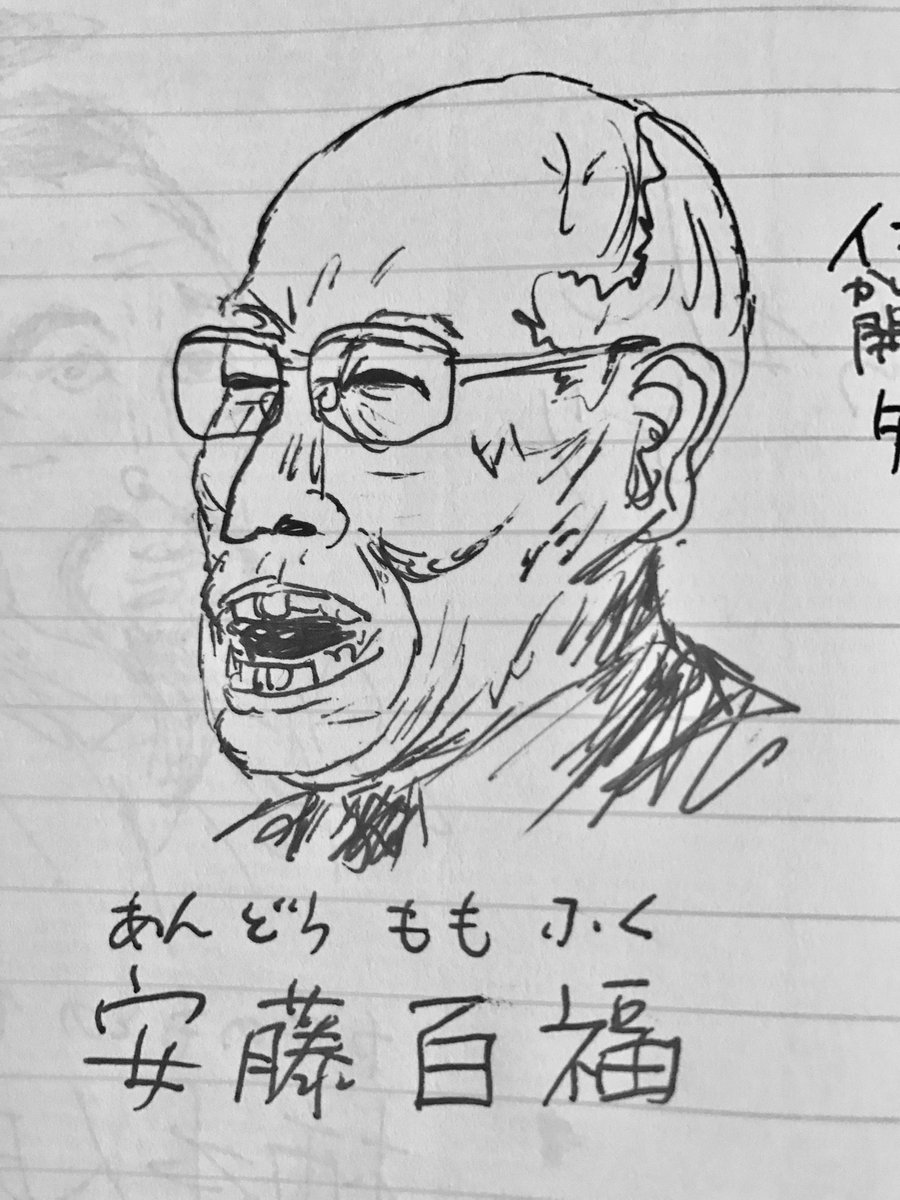 あんどう ももふく
安藤百福